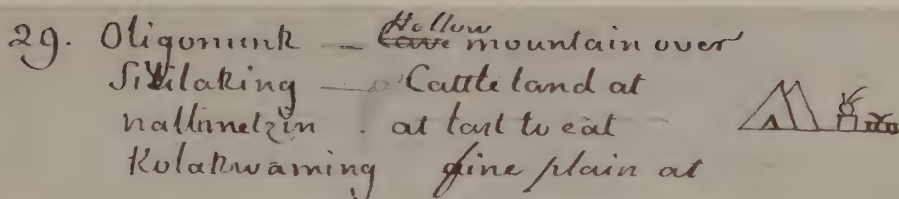 29. Oligonunk — Hollow Cave mountain over
Sililaking — Cattle land at
nallimetzin . at last to eat
Kolakwaming fine plain at